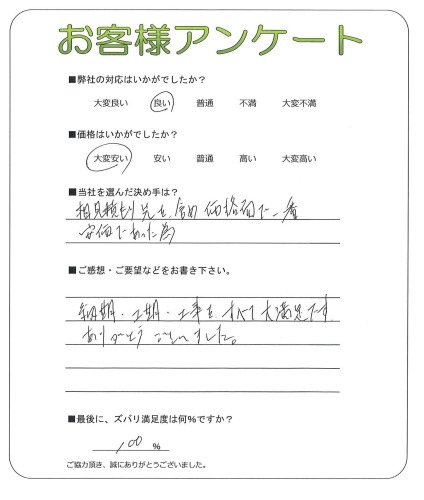 お客様アンケート
■弊社の対応はいかがでしたか？
大変良い 良い 普通 不満 大変不満
■価格はいかがでしたか？
大変安い 安い 普通 高い 大変高い
■当社を選んだ決め手は？
相見積もり先を含め価格面で一番
安価であった為
■ご感想・ご要望などをお書き下さい。
納期・工期・工事をすべて大満足です
ありがとうございました。
■最後に、ズバリ満足度は何%ですか？
100 %
ご協力頂き、誠にありがとうございました。